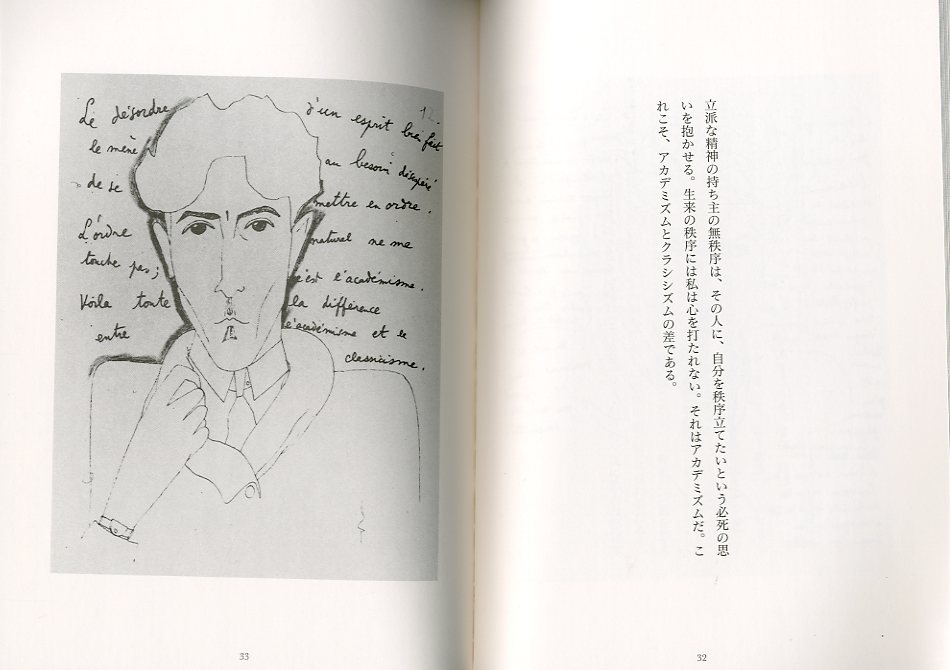 立派な精神の持ち主の無秩序は、その人に、自分を秩序立てたいという必死の思
いを抱かせる。生来の秩序には私は心を打たれない。それはアカデミズムだ。こ
れこそ、アカデミズムとクラシシズムの差である。
32
12.
Le désordre d'un esprit bien fait
le mène au besoin désespéré
de se mettre en ordre.
L'ordre naturel ne me
touche pas; c'est l'académisme.
Voila toute la différence
entre l'académisme et le
classicisme.
33